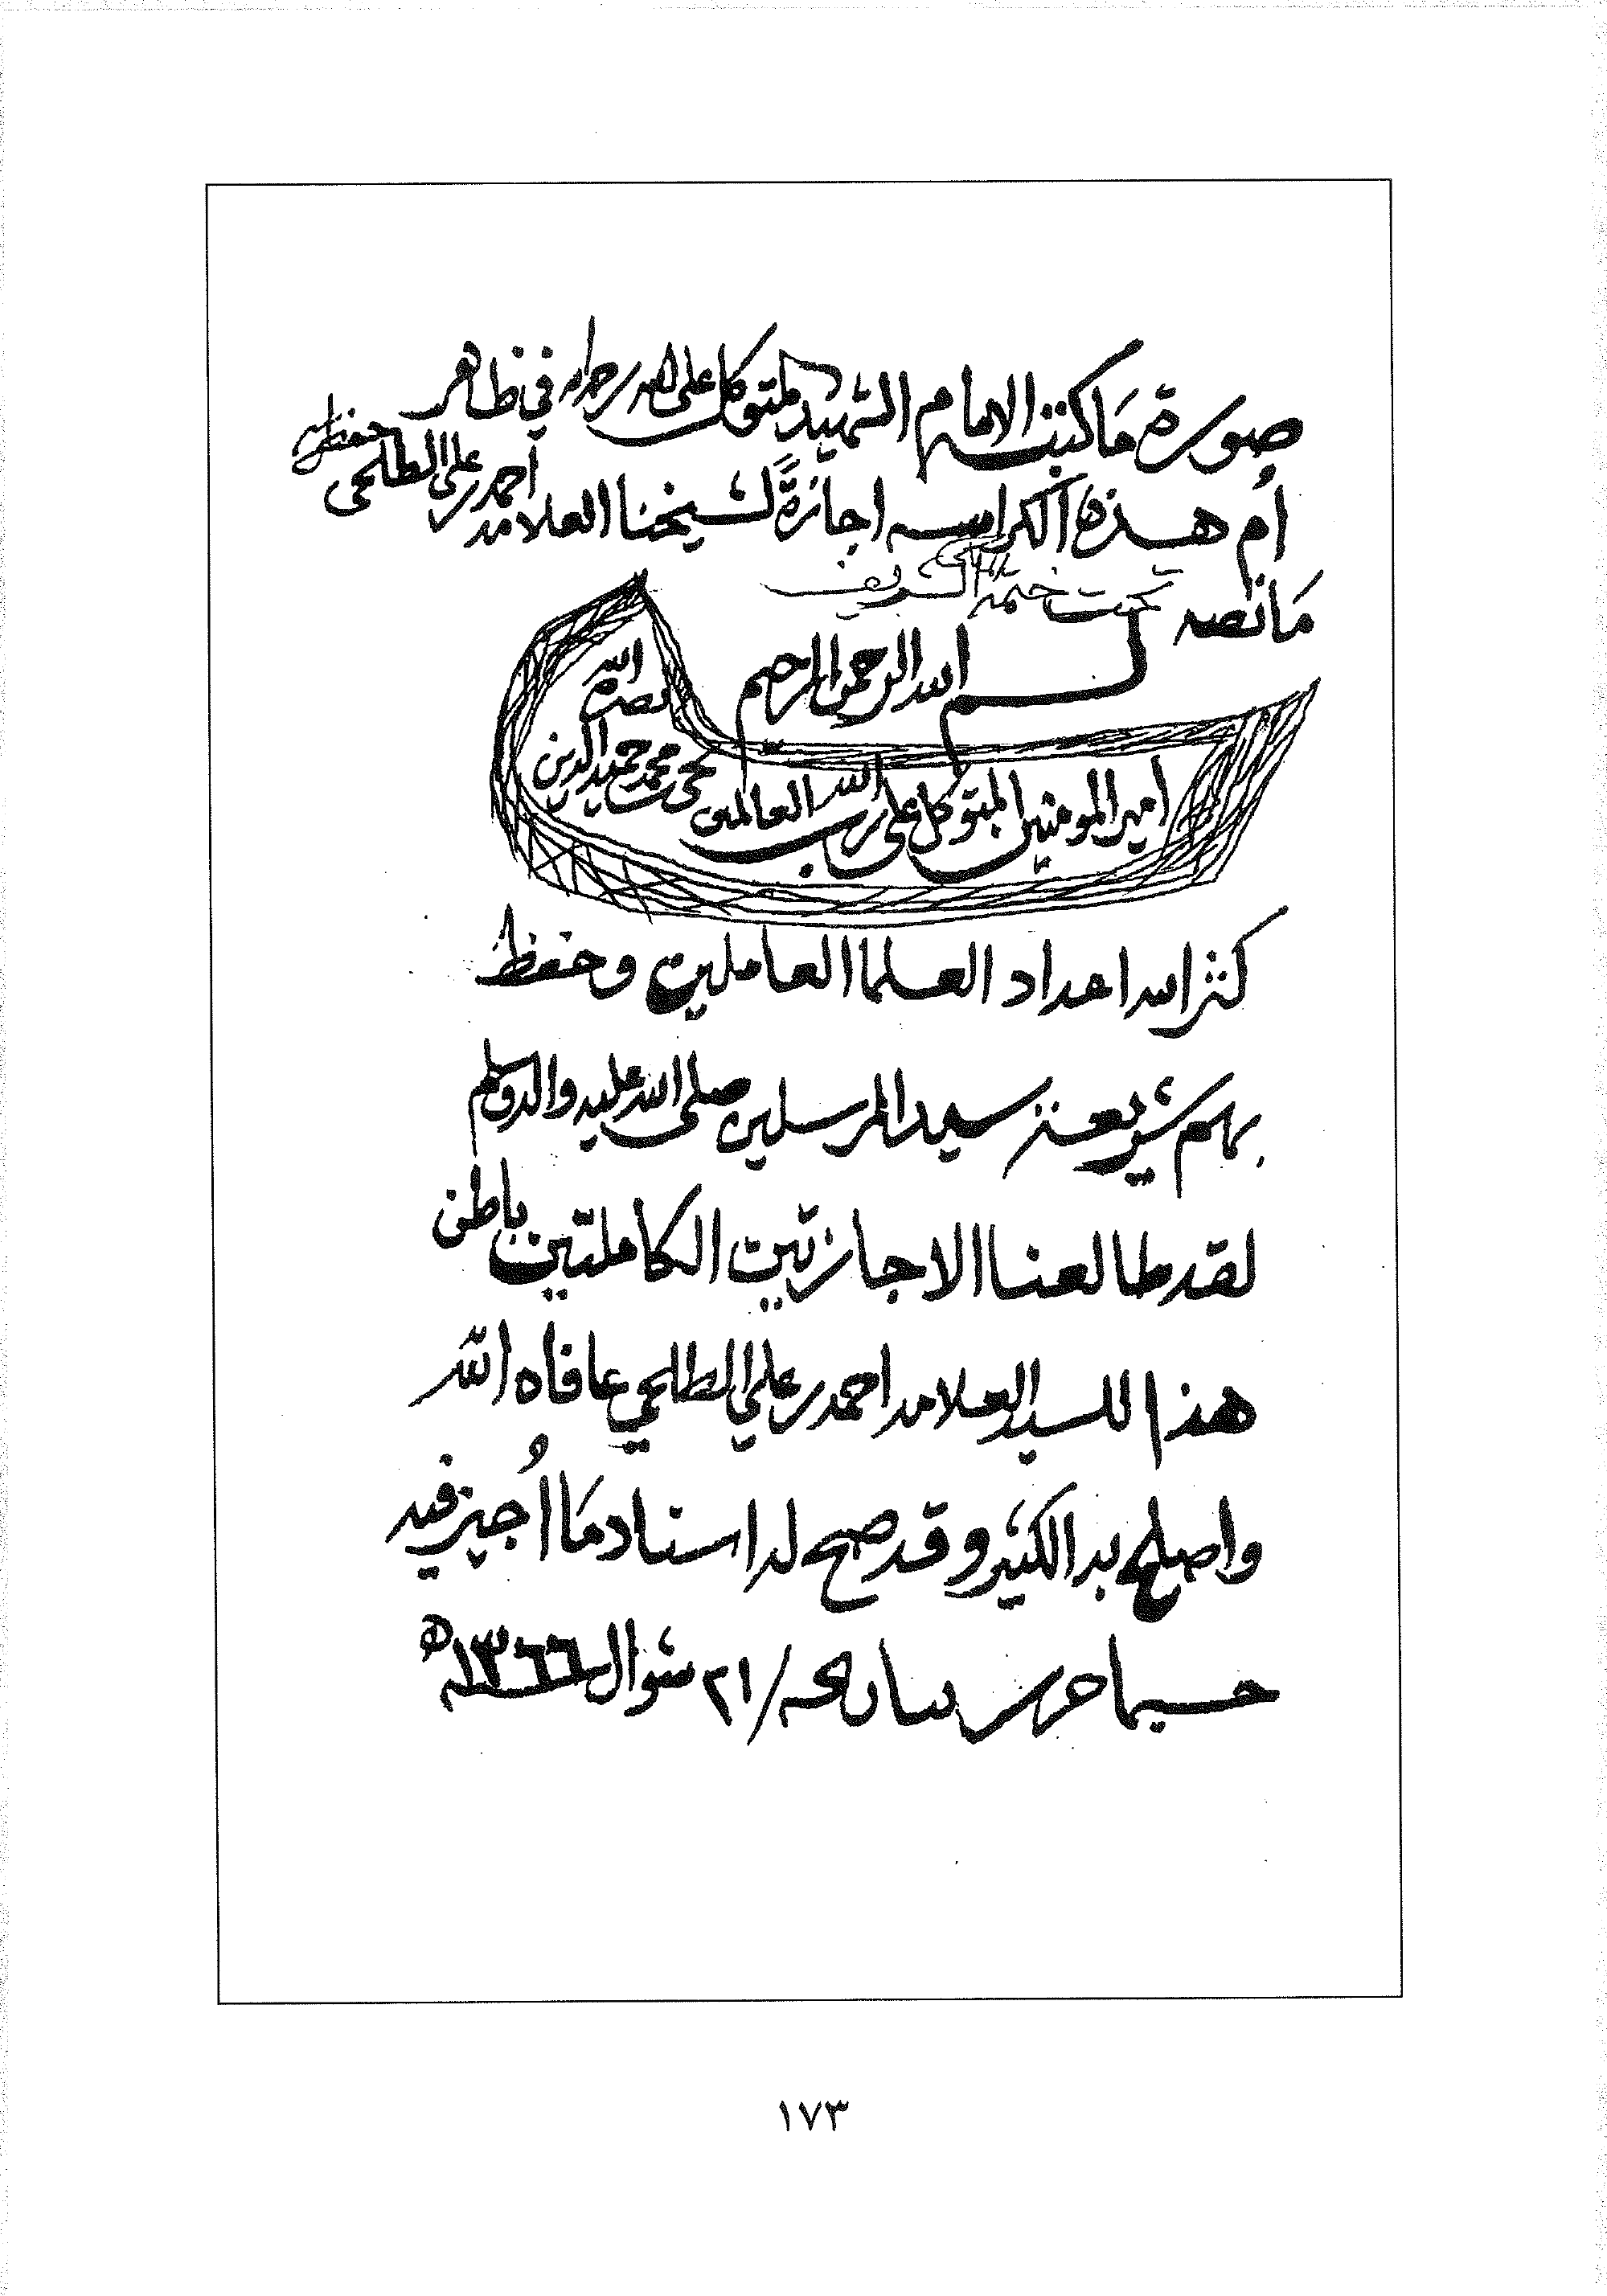 صورة مَا كتبه الامام الشهيد المتوكل على الله رحمه الله في ظاهر
أم هذه الكراسه اجازةً لشيخنا العلامه احمد بن علي الطلحي حفظه الله
مَا نصه
تحت ختمه الشريف
بسم الله الرحمن الرحيم
امير المومنين المتوكل على الله رب العالمين
يحيى بن محمد حميد الدين
نصره الله
كثر الله اعداد العلما العاملين وحفظ
بهم شريعة سيد المرسلين صلى الله عليه واله وسلم
لقد طالعنا الاجازتين الكاملتين باطن
هذا للسيد العلامه احمد بن علي الطلحي عافاه الله
واصلح به الكثير وقد صح له اسناد مَا أُجيز فيه
حسبما حرر /٢١ شوال ١٣٦٦ﻫ
١٧٣